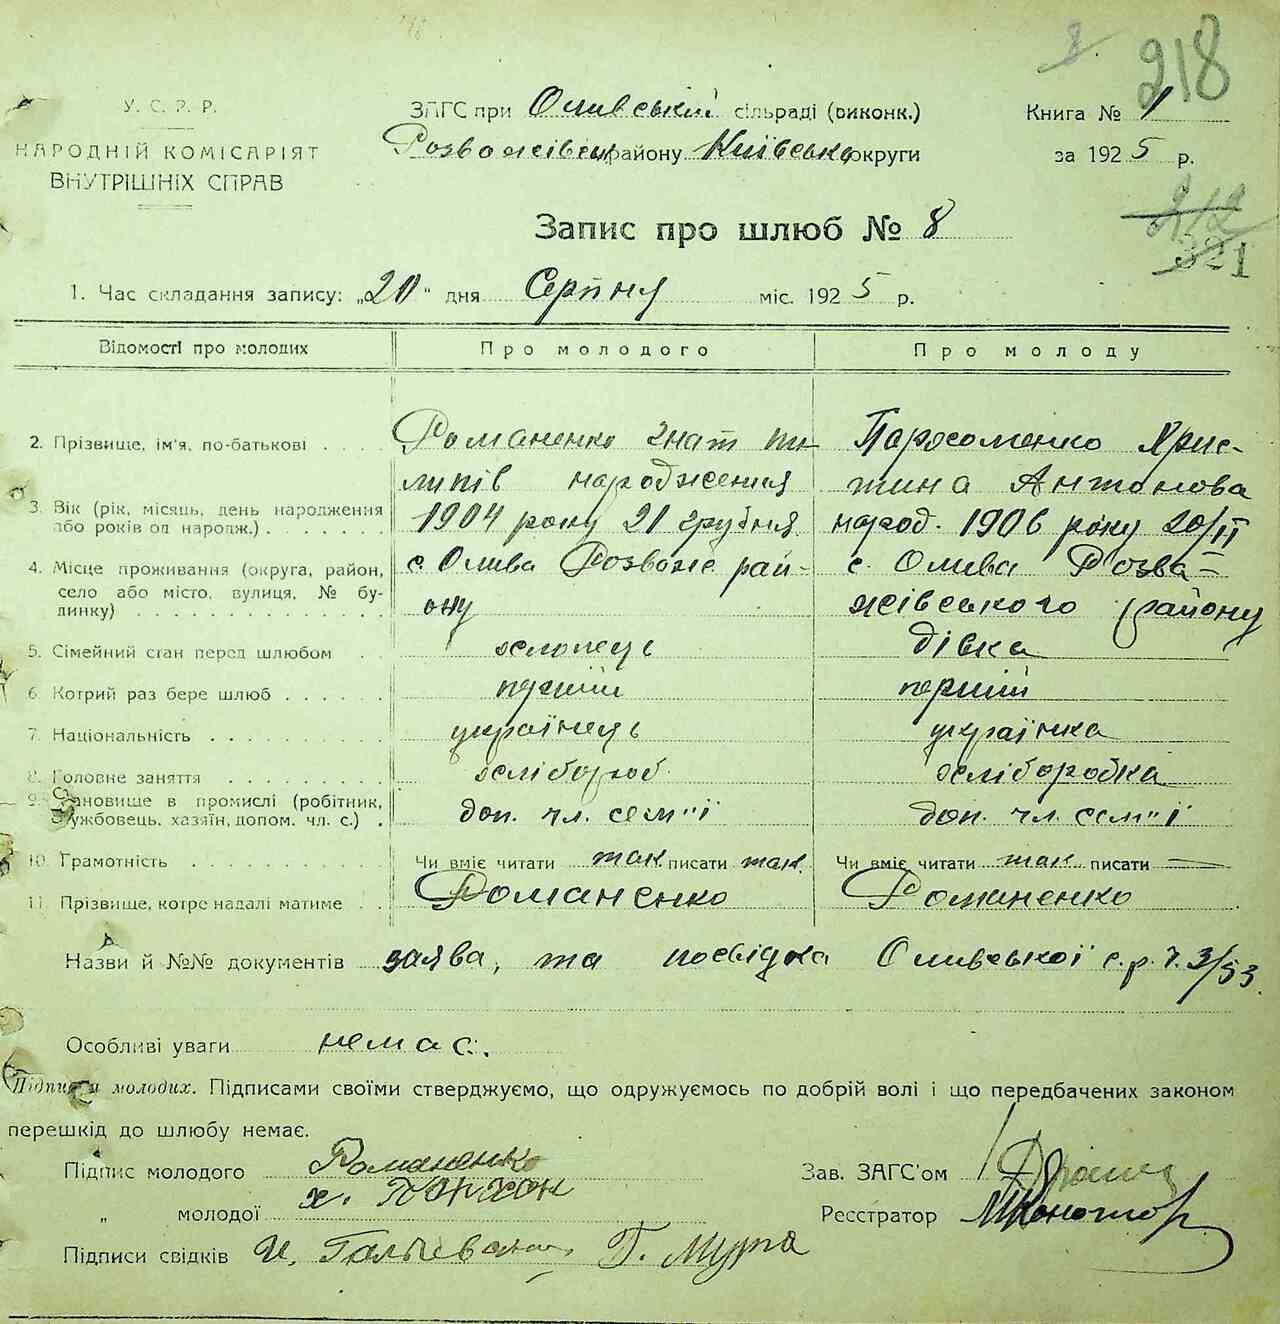 8 218
У. С. Р. Р.
НАРОДНІЙ КОМІСАРІЯТ
ВНУТРІШНІХ СПРАВ
ЗАГС при Оливській сільраді (виконк.)
району Київсько округи
Книга № 1
за 1925 р.
212
321
Запис про шлюб № 8
1. Час складання запису: „20“ дня Серпня міс. 1925 р.
Відомості про молодих Про молодого Про молоду
2. Прізвище, ім'я, по-батькові Романенко Гнат Пи-
липів народження
Пархоменко Хрис-
тина Антонова
3. Вік (рік, місяць, день народження
або років од народж.) 1904 року 21 грудня народ. 1906 року 20/II
4. Місце проживання (округа, район,
село або місто, вулиця, № бу-
динку)
с. Олива Розваже рай-
ону
с. Олива Розва-
жівського району
5. Сімейний стан перед шлюбом хлопець дівка
6. Котрий раз бере шлюб перший перший
7. Національність українець українка
8. Головне заняття хлібороб хліборобка
9. Становище в промислі (робітник,
службовець, хазяїн, допом. чл. с.) доп. чл. сем"ї доп. чл. сем"ї
10. Грамотність Чи вміє читати так писати так Чи вміє читати так писати —
11. Прізвище, котре надалі матиме Романенко Романенко
Назви й №№ документів заява, та посвідка Оливської с.р. ч. 3/53
Особливі уваги немає.
Підписи молодих. Підписами своїми стверджуємо, що одружуємось по добрій волі і що передбачених законом
перешкід до шлюбу немає.
Підпис молодого Романенко
„ молодої х.
Підписи свідків Г. Мура
Зав. ЗАГС'ом
Реєстратор